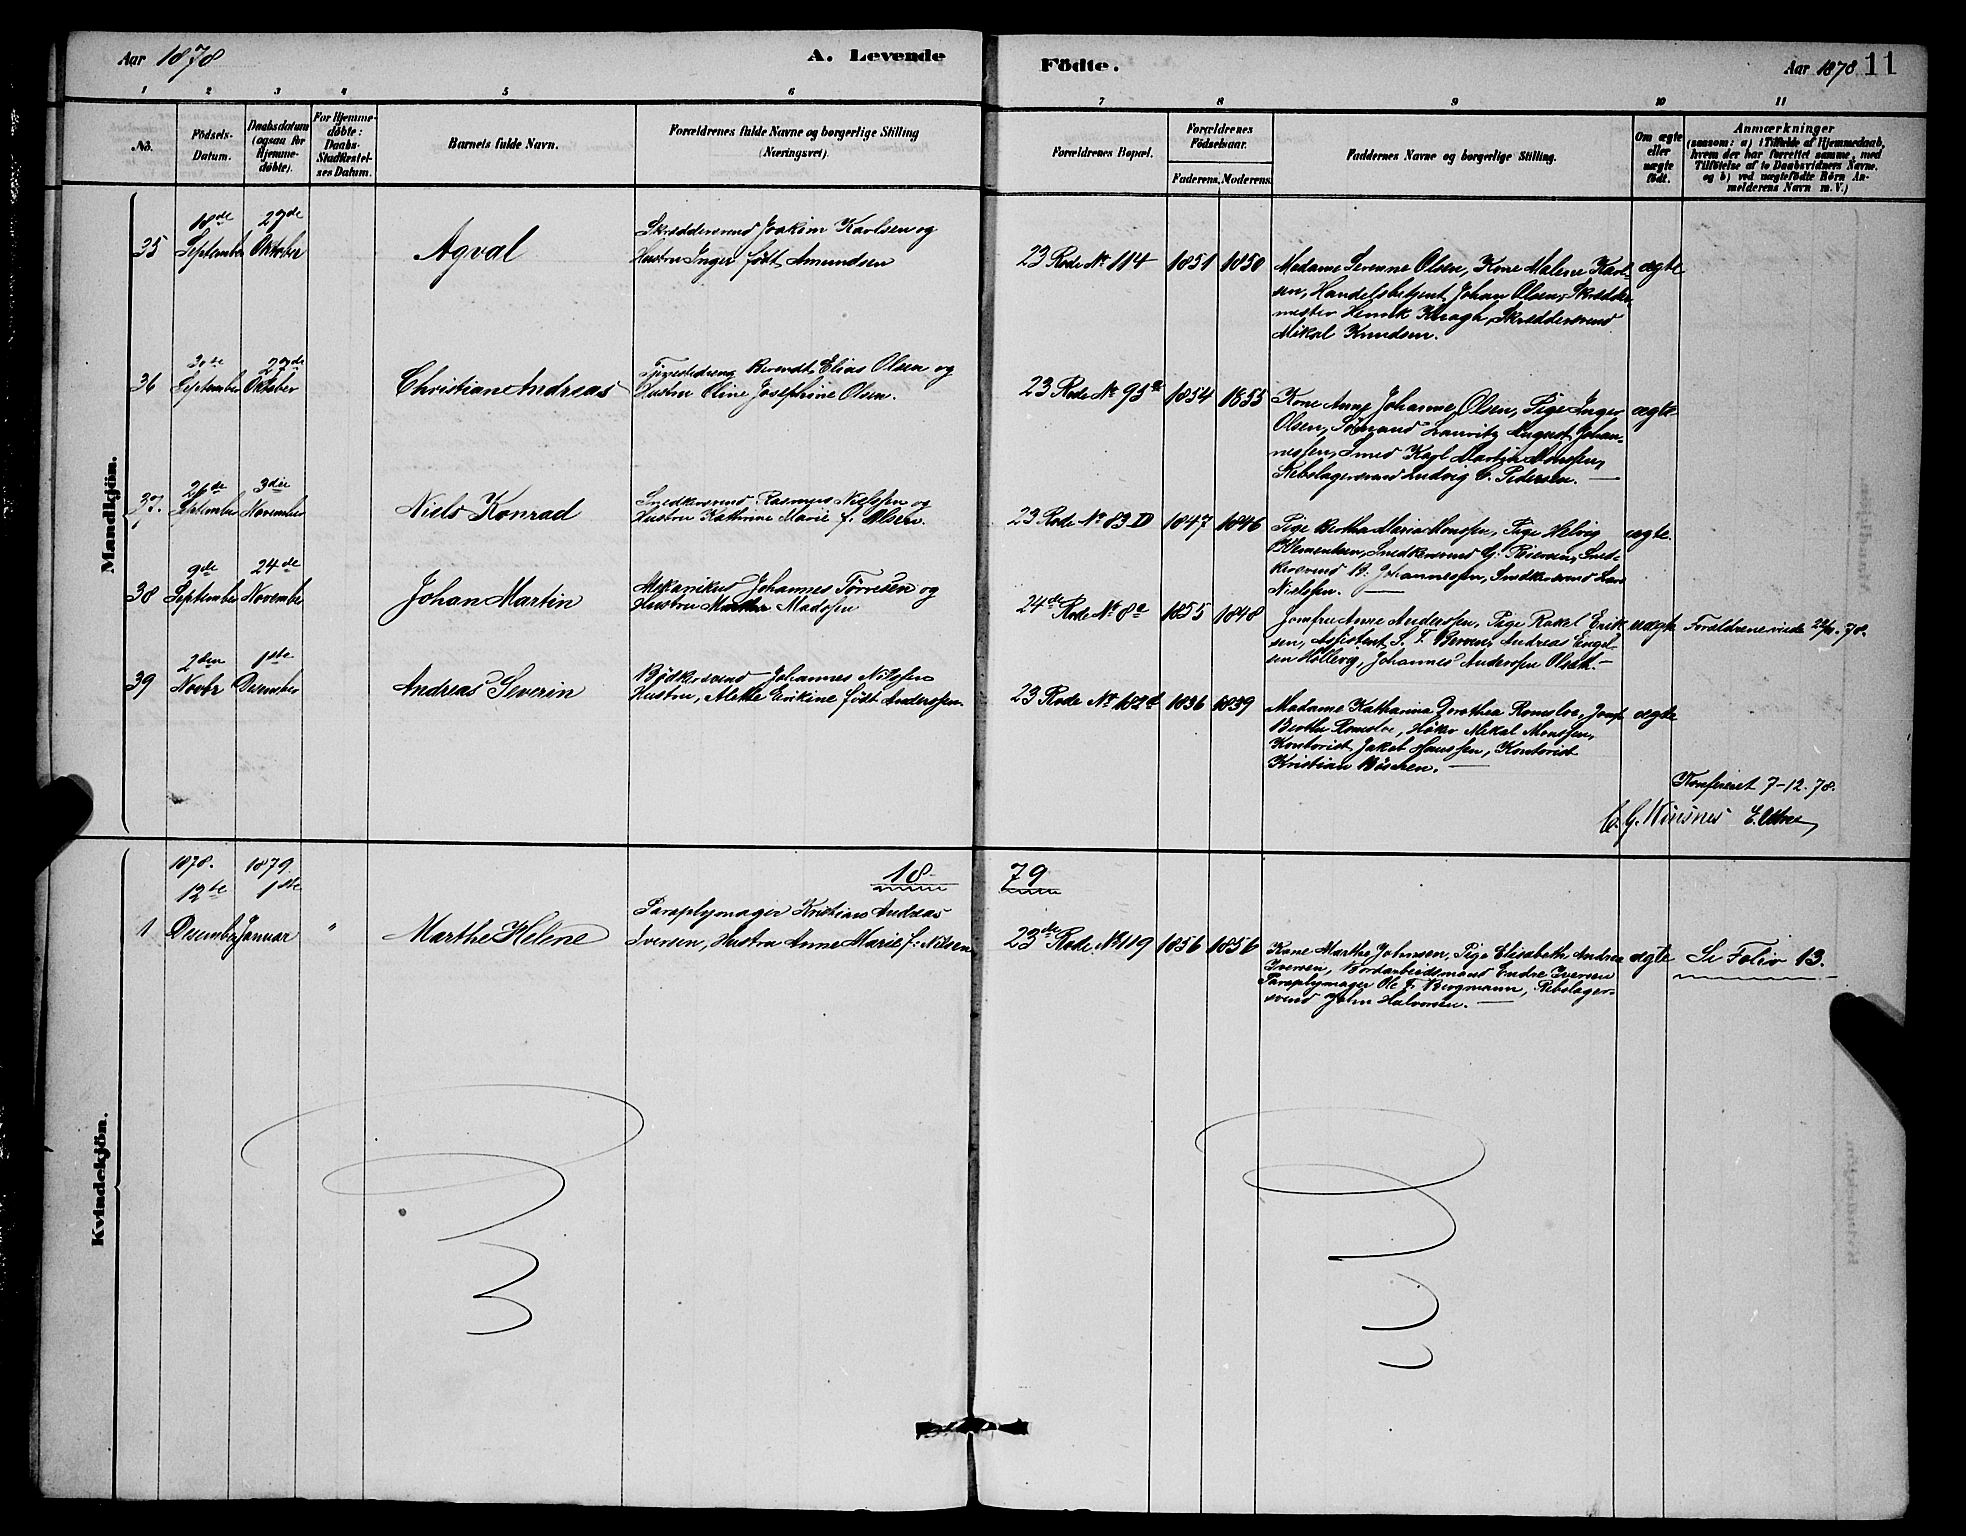 Aar 1878 A. Levende Födte. Aar 1878 11
1 2 3 4 5 6 7 8 9 10 11
No.
Födsels-Datum.
Daabsdatum (ogsaa for Hjemmedøbte).
For Hjemmedøbte: Daabs-Stadfæstelses Datum.
Barnets fulde Navn.
Forældrenes fulde Navne og borgerlige Stilling (Næringsvei).
Forældrenes Bopæl.
Forældrenes Födselsaar.
Faderens. Moderens.
Faddernes Navne og borgerlige Stilling.
Om ægte eller uægte født.
Anmærkninger
(saasom: a) i Tilfælde af Hjemmedaab,
hvem der har forrettet samme, med
Tilföielse af to Daabsvidners Navne,
og b) ved uægtefödte Börn An-
melderens Navn m. V.)
Mandkjön.
35 18de September 27de Oktober
Agval
Skræddersvend Joakim Karlsen og
Hustru Inger født Amundsen
23 Rode No 114 1851 1850
Madame Severine Olsen, Kone Malene Karl-
sen, Handelsbetjent Johan Olsen, Skrædder-
mester Henrik Kragh, Skræddersvend
Mikal Knudsen.
ægte
36 September 27de Oktober
Christian Andreas
Berendt Elias Olsen og
Hustru Oline Josephine Olsen.
23 Rode No 95a 1854 1855
Kone Anne Johanne Olsen, Pige Inger
Olsen, Sømand Lauritz August Johan-
nessen, Smed Karl Martin Monsen,
Rebslagersvend Ludvig C. Pedersen.
ægte
37. 26de September 3die November
Niels Konrad
Snedkersvend Rasmus Nielssen og
Hustru Kathrine Marie f. Olsen.
23 Rode No 83 D 1847 1846
Pige Bertha Maria Monssen, Pige Helvig
Klementsen, Snedkersvend G. Sned-
kersvend B. Johannessen, Snedkersvend Lars
Nielssen.
ægte.
38 9de September 24de November
Johan Martin
Mekanikus Johannes Tørresen og
Hustru Marthe Madssen
24de Rode No 8a 1855 1848
Jomfru Anne Anderssen, Pige Rakel Erik-
sen, Assistent S. T. Andreas Engel-
sen Johannes Anderssen
uægte
Forældrene viede 78.
39 2den Novbr 1ste Desember
Andreas Severin
Bødkersvend Johannes Nilssen
Hustru, Alette Erikine født Anderssen.
23 Rode No 182d 1836 1839
Madame Katharina Dorothea Romsloe, Jomf.
Berthe Romsloe, Høker Mikal Monssen,
Kontorist Jakob Hanssen, Kontorist
Kristian Büschen.
ægte
Konfereret 7-12.78.
Kvindekjön.
18 79
1878. 1879.
1 12te Desember 1ste Januar "
Marthe Helene
Paraplymager Kristian Andreas
Iversen, Hustru Anne Marie f. Nilsen
23de Rode No 119 1856 1856
Kone Marthe Johnsen, Pige Elisabeth Andrea
Iversen, Bordarbeidsmand Endre Iversen
Paraplymager Ole J. Bergmann, Rebslager-
svend John Halvorsen.
ægte
Se Folio 13.